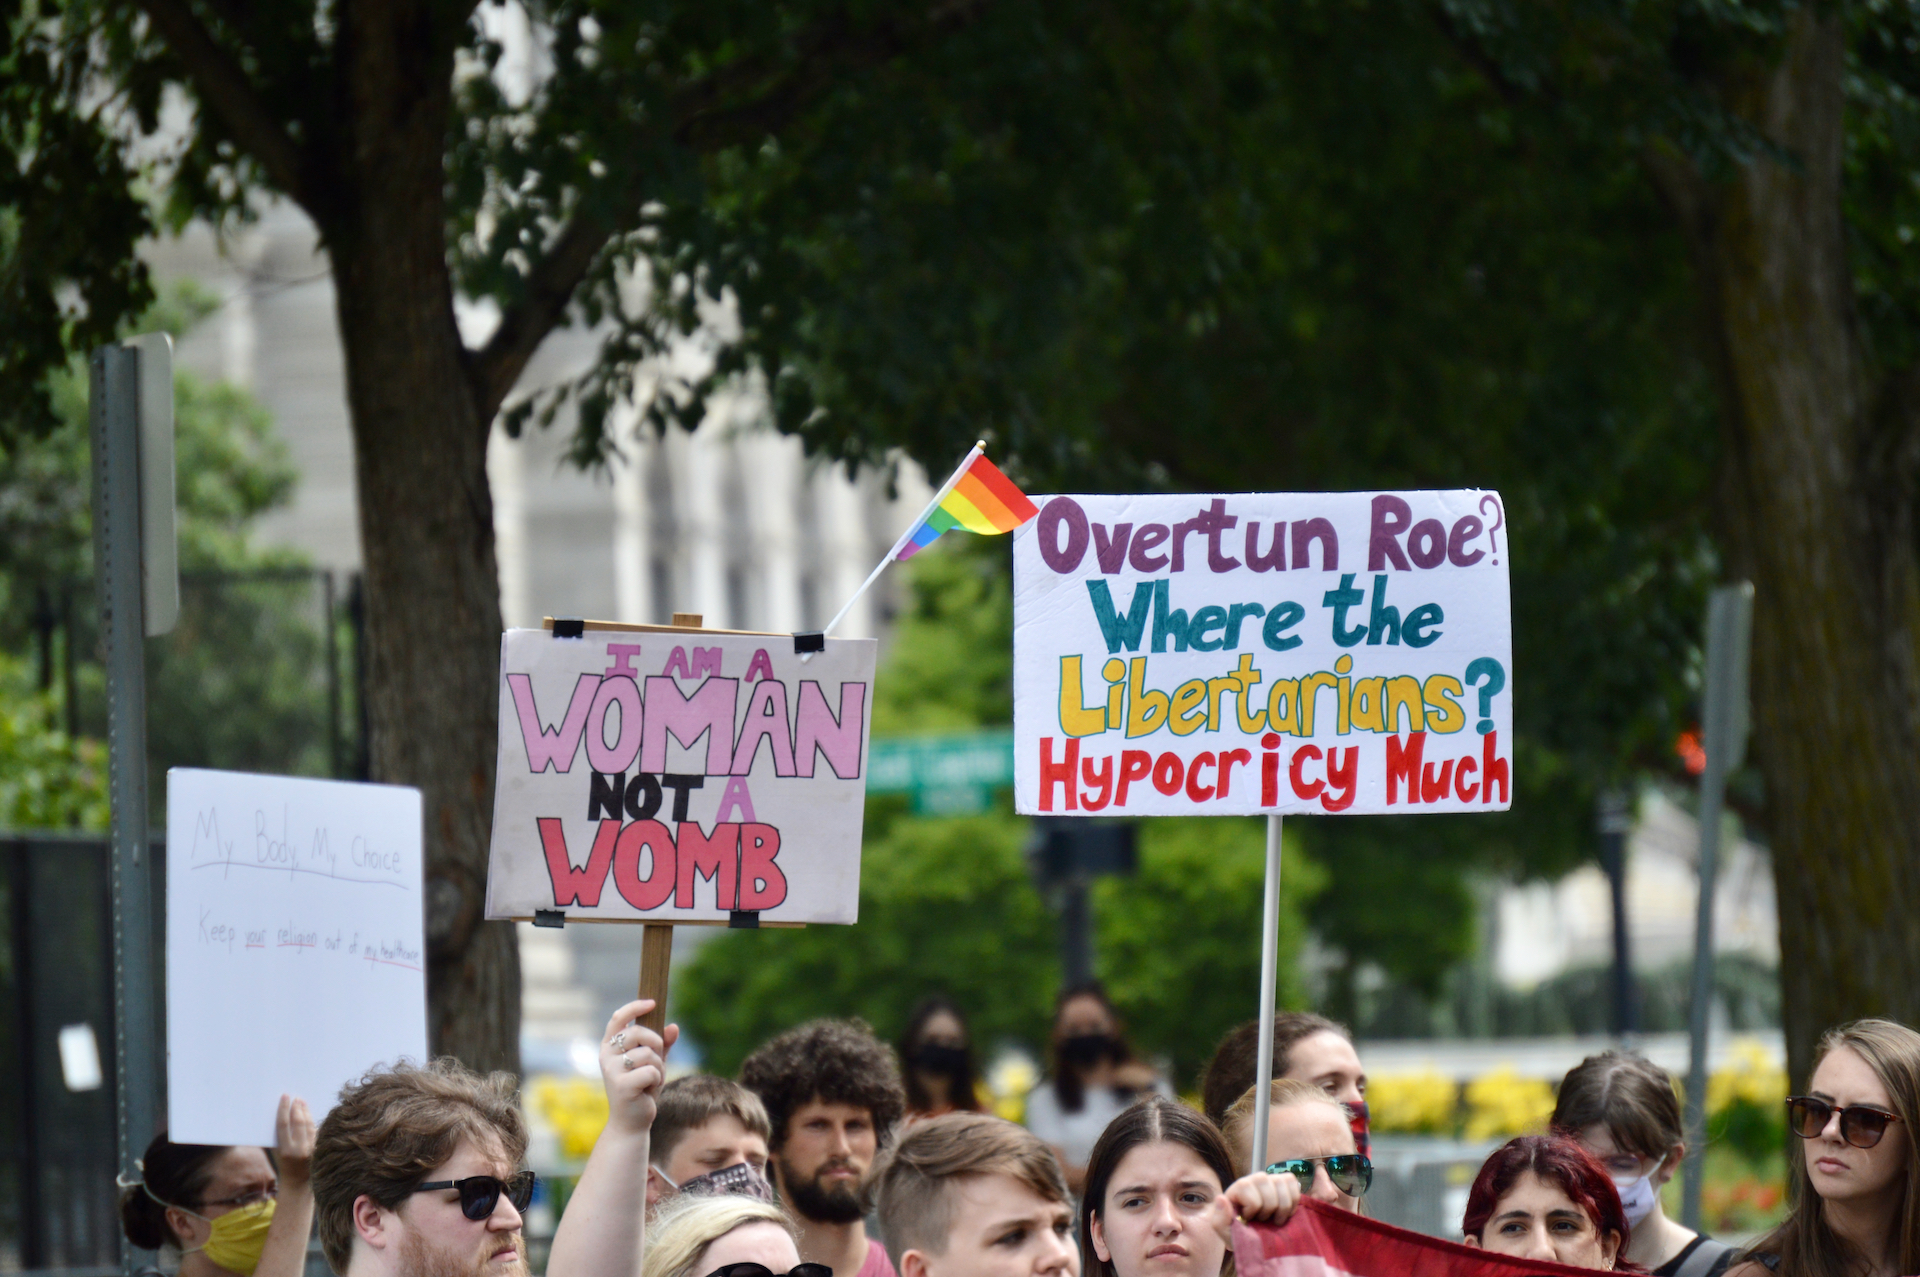 My Body, My Choice
Keep your religion out of my healthcare
I AM A
WOMAN
NOT A
WOMB
Overtun Roe?
Where the
Libertarians?
Hypocricy Much